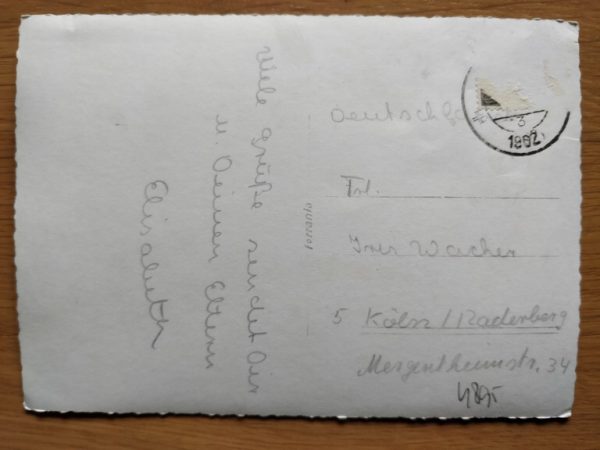 Viele Grüße sendet Dir
u. Deinen Eltern
Elisabeth
Deutschla
1962
Frl.
Wacher
5 Köln / Raderberg
Mergentheimstr. 34